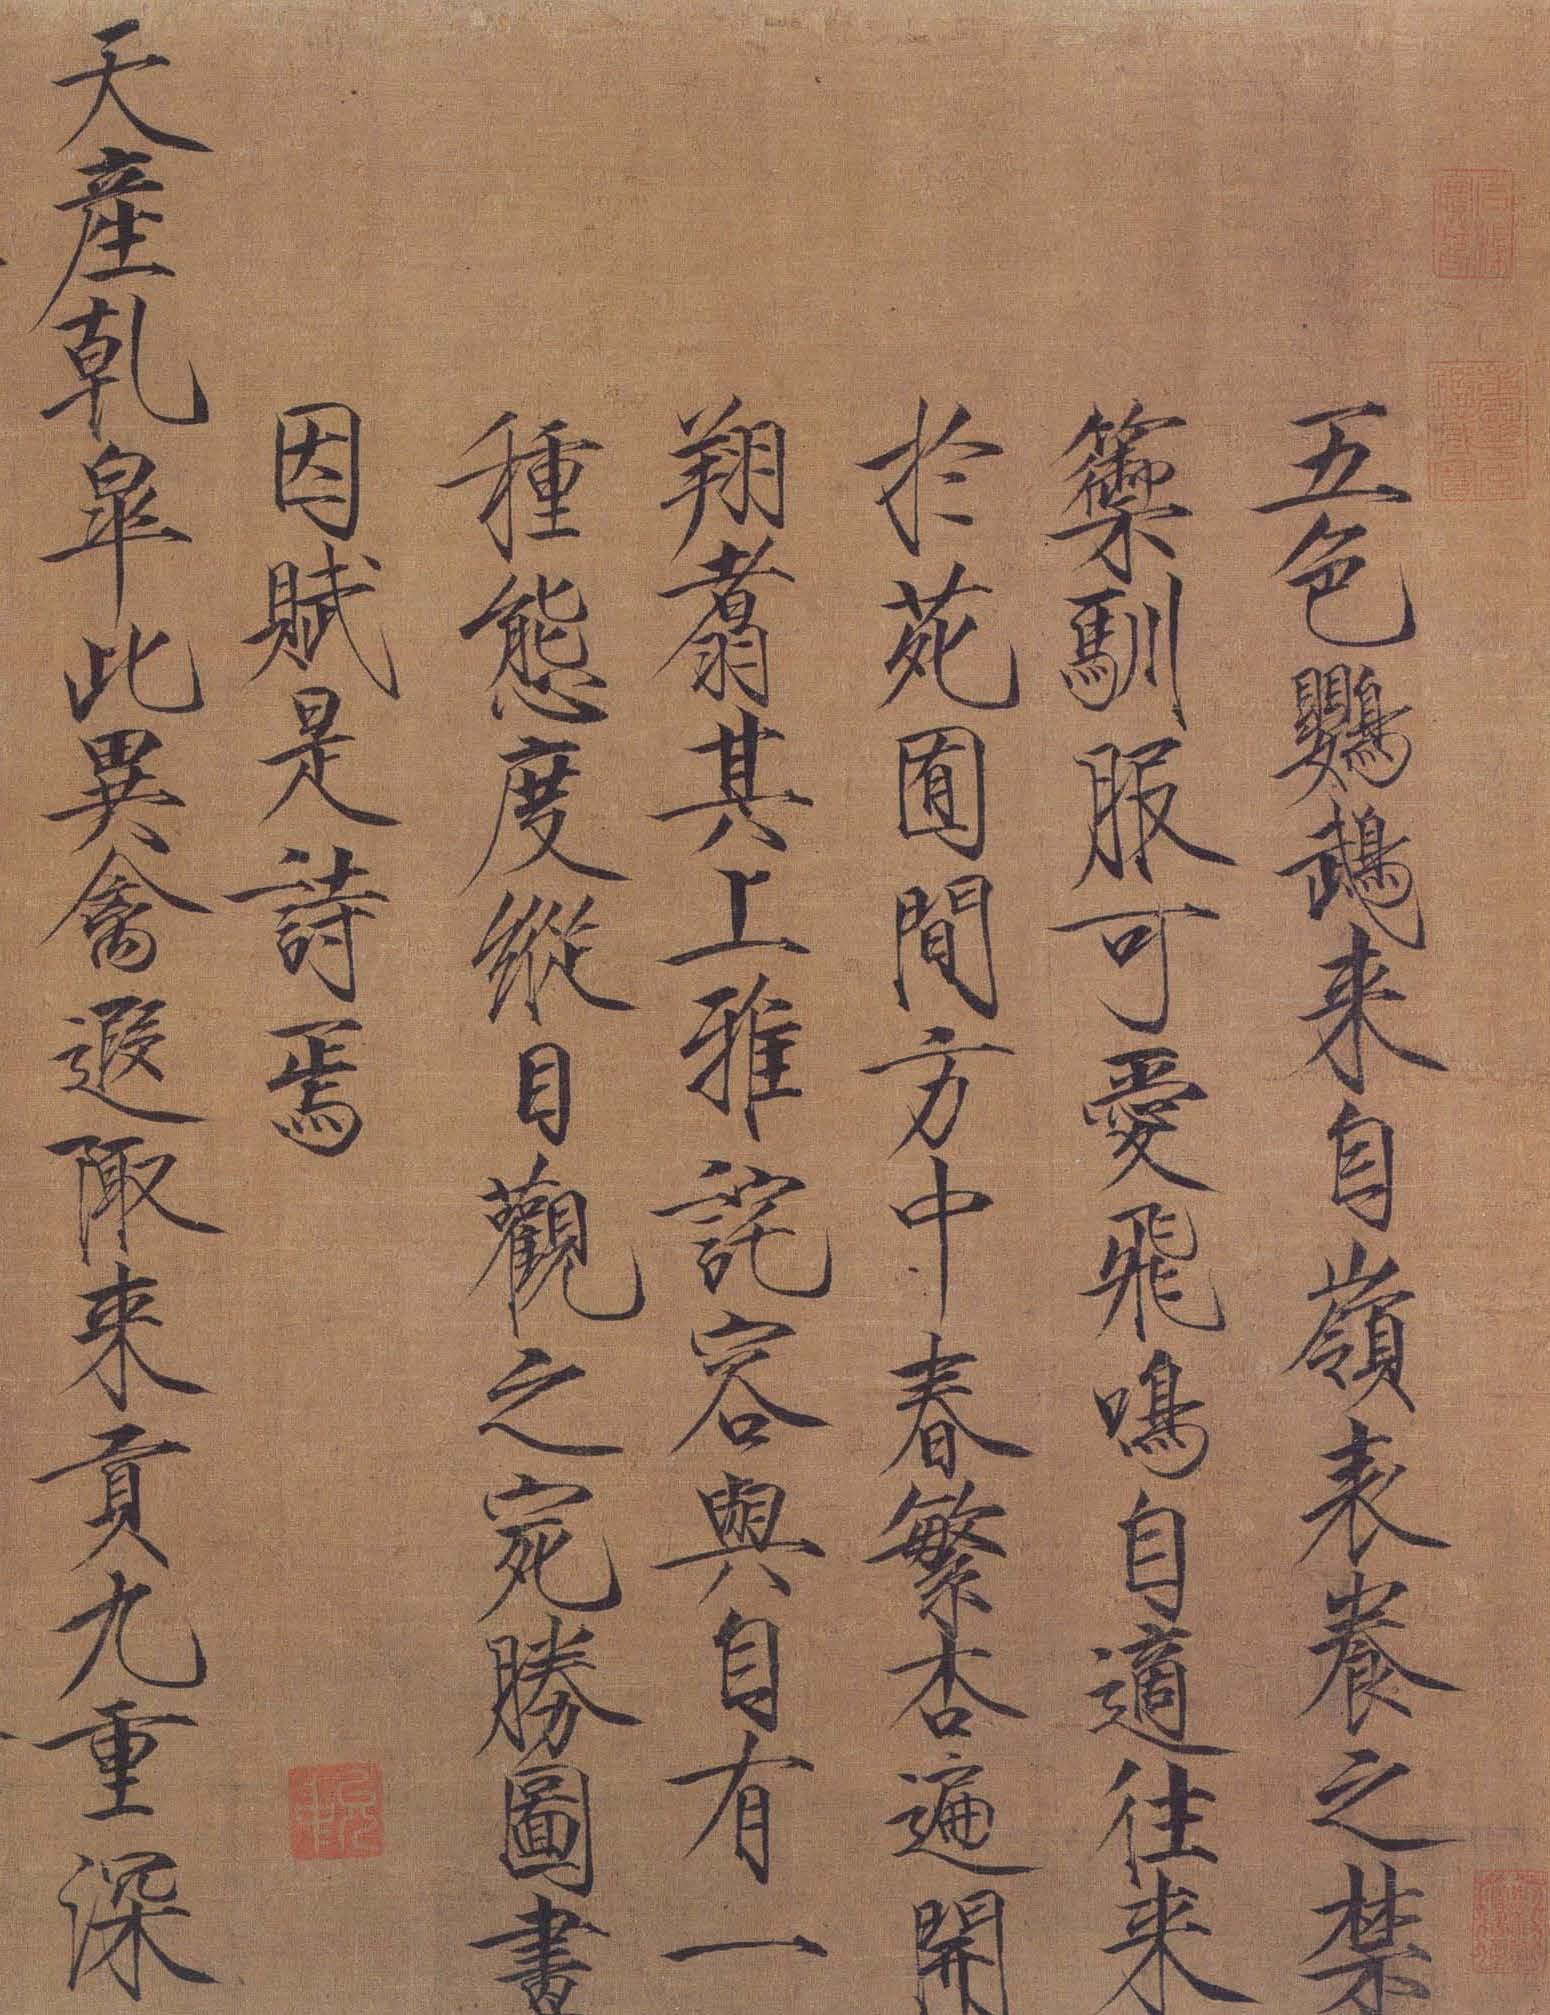 五色鸚鵡来自嶺表養之禁
籞馴服可愛飛鳴自適往来
於苑囿間方中春繁杏遍開
翔翥其上雅詫容與自有一
種態度縱目觀之宛勝圖畫
因賦是詩焉
天産乾皐此異禽遐陬来貢九重深